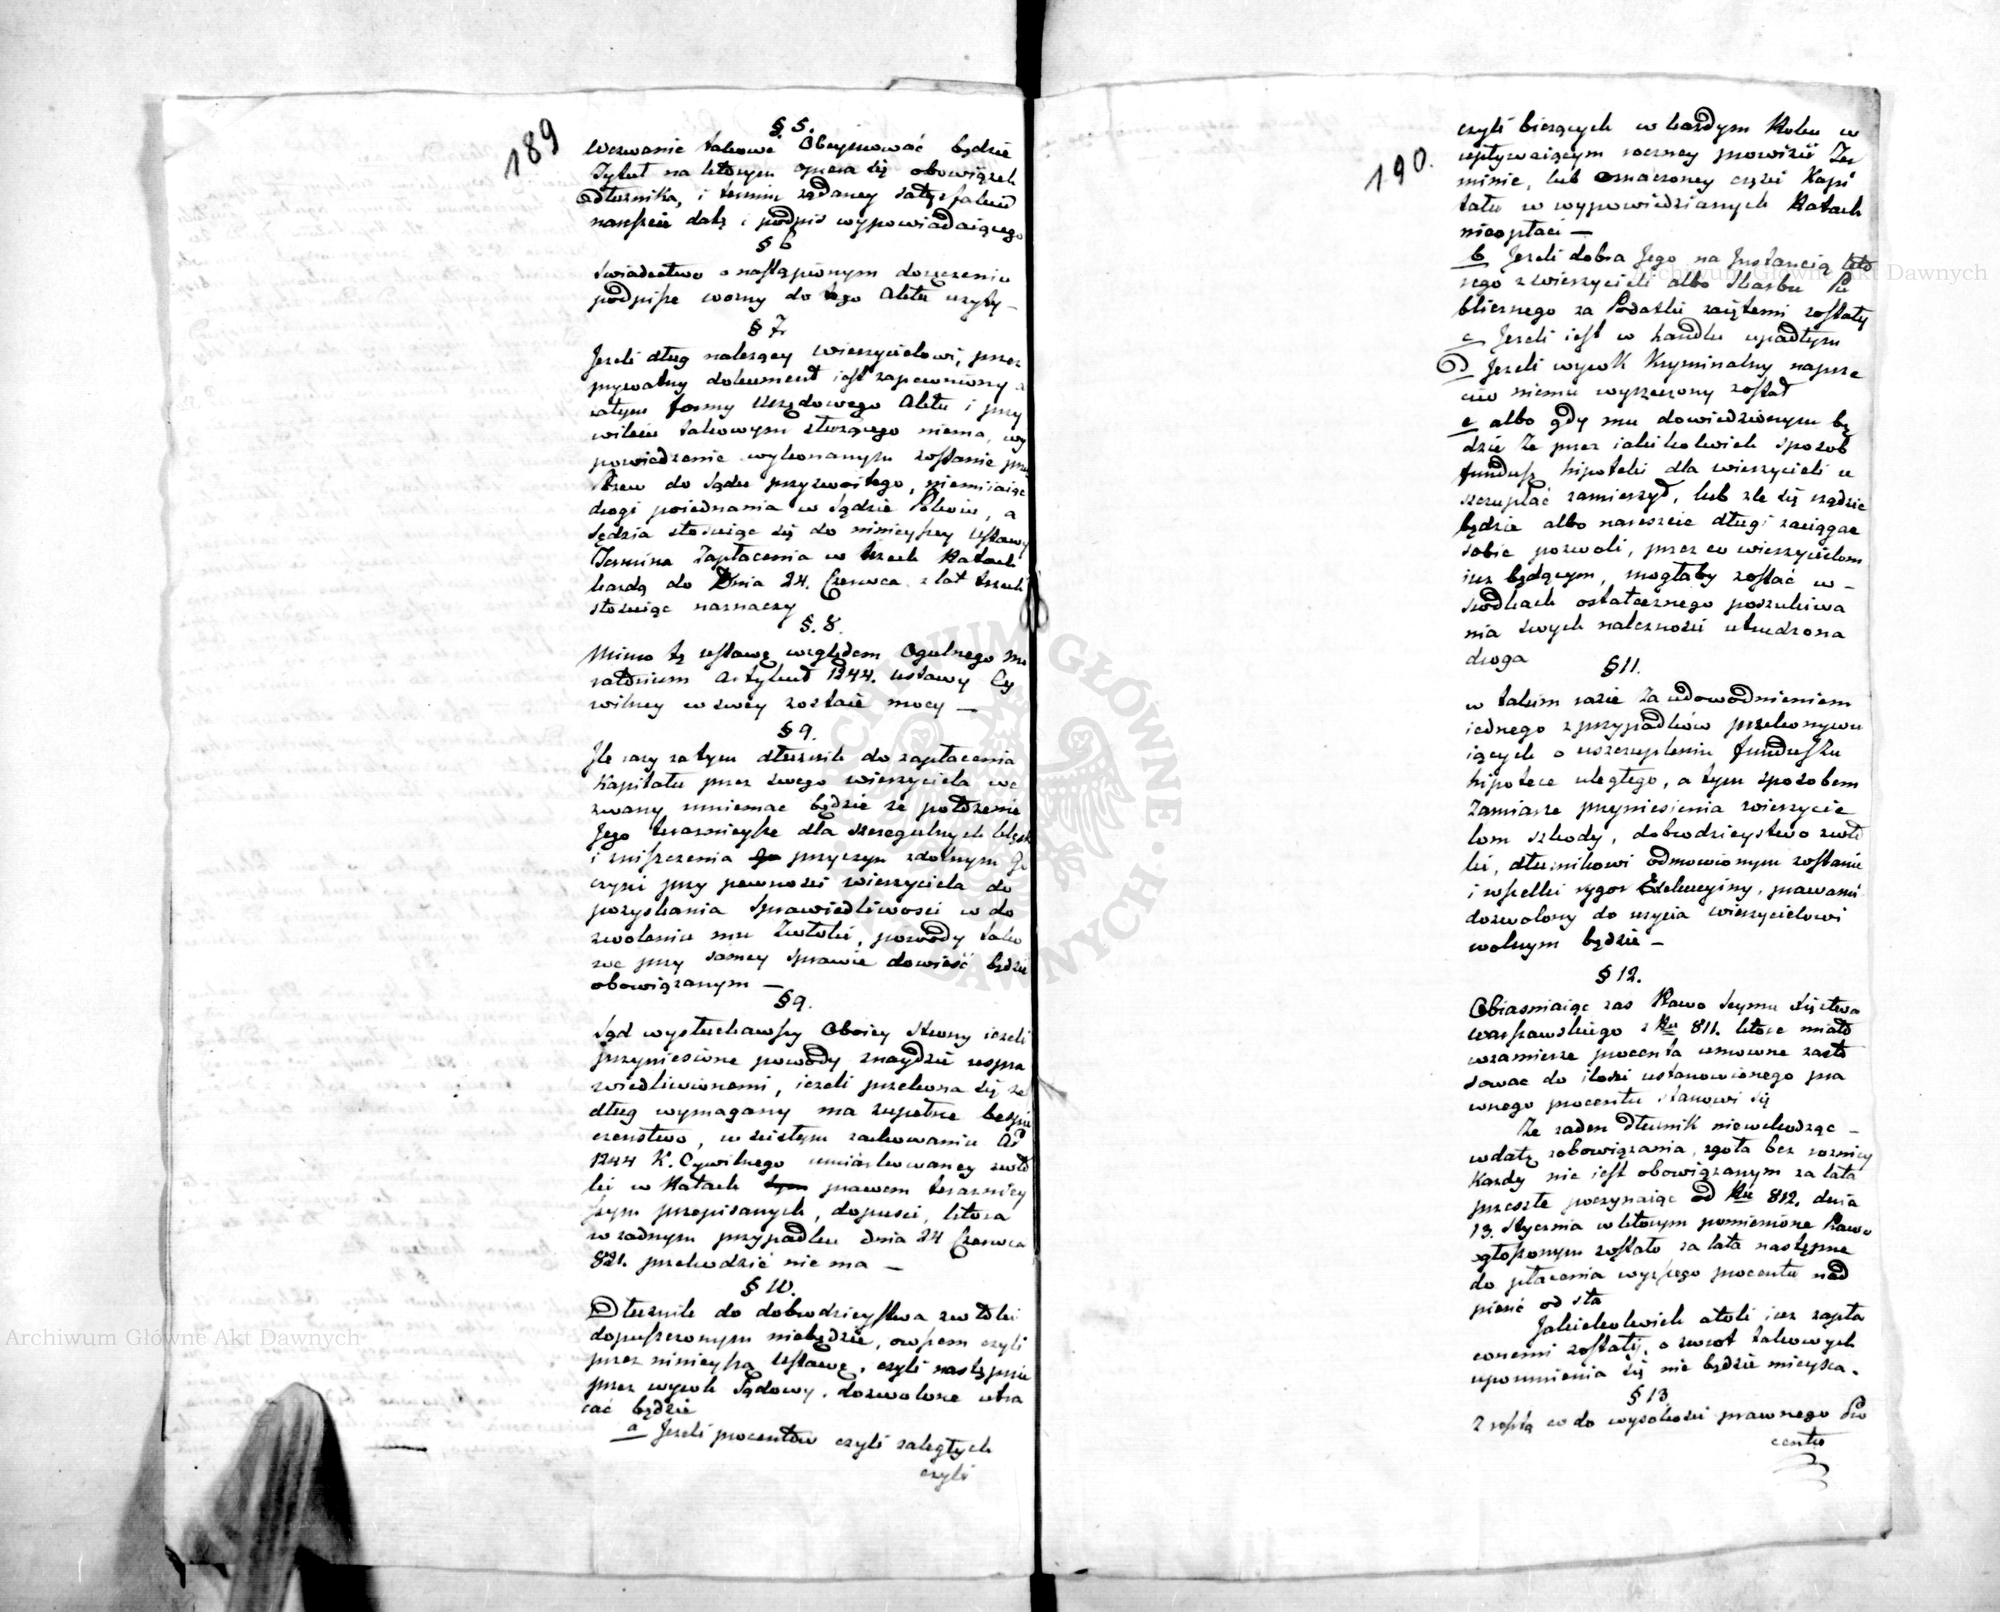 189
§. 5.
Wezwanie takowe Obeymować będzie
Tytuł na którym opiera się obowiązek
dłużnika, i termin żądaney satysfakcii
nareszcie datę i podpis wypowiadaiącego
§ 6
Świadectwo o nastąpionym doręczeniu
podpisze woźny do tego Aktu użyty —
§ 7.
Jeżeli dług należący wierzycielowi, przez
prywatny dokument iest zapewniony a
zatym formy Urzędowego Aktu i przy
wileiu takowym służącego niema, wy
powiedzenie wykonanym zostanie przez
Pozew do Sądu przyzwoitego, niemiiaiąc
drogi poiednania w Sądzie Pokoiu, a
Sędzia stosuiąc się do ninieyszey Ustawy
Termina Zapłacenia w trzech Ratach
każdą do Dnia 24. Czerwca z lat trzech
stosuiąc naznaczy
§. 8.
Mimo tę ustawę względem Ogulnego Mo
ratorium Artykuł 1244. ustawy Cy
wilney w swey zostaie mocy —
§ 9.
Ile razy zatym dłużnik do zapłacenia
Kapitału przez swego wierzyciela we
zwany mniemać będzie że położenie
Jego teraznieysze dla szczegulnych klęsk
i zniszczenia przyczyn zdolnym Go
czyni przy pewności wierzyciela do
pozyskania Sprawiedliwości w do
zwoleniu mu Zwłoki, powody tako
we przy samey Sprawie dowieść będzie
obowiązanym —
§ 9.
Sąd wysłuchawszy Oboiey Strony ieżeli
przyniesione powody znaydzie uspra
wiedliwionemi, ieżeli przekona się że
dług wymagany ma zupełne bezpie
czeństwo, w ścisłym zachowaniu Ar
1244 K. Cywilnego umiarkowaney zwło
ki w Ratach tym prawem teraźniey
szym przepisanych, dopuści, która
w żadnym przypadku dnia 24 Czerwca
821. przechodzić nie ma —
§ 10.
Dłużnik do dobrodzieystwa zwłoki
dopuszczonym niebędzie, owszem czyli
przez ninieyszą Ustawę, czyli następnie
przez wyrok Sądowy, dozwolone utra
cać będzie
a Jeżeli procentów czyli zaległych
czyli
190.
czyli bieżących w każdym Roku w
upływaiącym roczney prowizii Ter
minie, lub oznaczoney części Kapi
tału w wypowiedzianych Ratach
nieopłaci —
b Jeżeli dobra Jego na Instancią któ
rego z wierzycieli albo Skarbu Pu
blicznego za Podatki zaiętemi zostały
c Jeżeli iest w handlu upadłym
d Jeżeli wyrok Kryminalny naprze
ciw niemu wyrzeczony został
e albo gdy mu dowiedzionym bę
dzie że przez iakikolwiek sposób
fundusz hipoteki dla wierzycieli u
szczuplać zamierzył, lub źle się rządzić
będzie albo nareszcie długi zaciągać
sobie pozwoli, przez co wierzycielom
iuż będącym, mogłaby zostać w —
środkach ostatecznego poszukiwa
nia swych należności utrudzona
droga
§ 11.
w takim razie za udowodnieniem
iednego z przypadków przekonywu
iących o uszczupleniu funduszu
hipotece uległego, a tym sposobem
zamiarze przyniesienia wierzycie
lom szkody, dobrodzieystwo zwło
ki, dłużnikowi odmowionym zostanie
i wszelki rygor Exekucyiny, prawami
dozwolony do użycia wierzycielowi
wolnym będzie —
§ 12.
Obiaśniaiąc zaś Prawo Seymu Xięstwa
Warszawskiego z Ru 811. które miało
w zamiarze procenta umowne zasto
sować do ilości ustanowionego pra
wnego procentu stanowi się
Że żaden dłużnik niewchodząc —
w datę zobowiązania, zgoła bez różnicy
Każdy nie iest obowiązanym za lata
przeszłe poczynaiąc od Ru 812. dnia
13. Stycznia w którym pomienione Prawo
ogłoszonym zostało za lata następne
do płacenia wyższego procentu nad
pięć od sta
Jakiekolwiek atoli iuż zapła
conemi zostały, o zwrot takowych
upomnienia się nie będzie mieysca.
§ 13
Zresztą co do wysokości prawnego Pro
centu